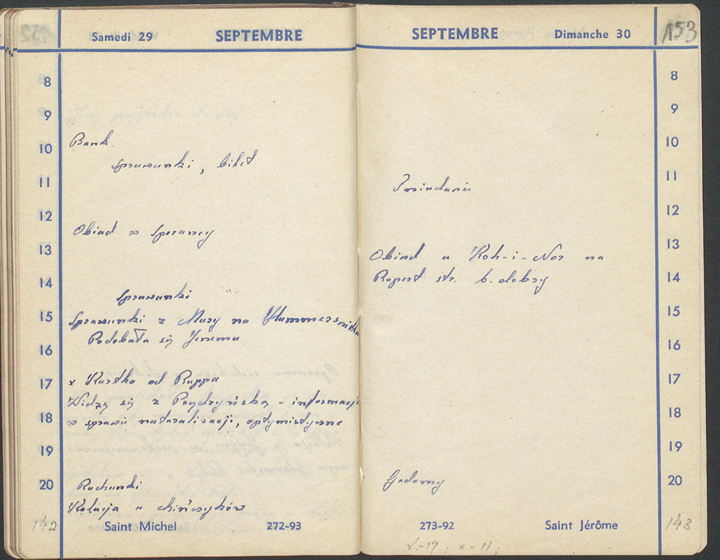 Samedi 29 SEPTEMBRE
8
9
10
Bank
sprawunki, bilet
11
12
Obiad w
13
14
sprawunki
15
Sprawunki z Mary na
Podobała się
16
17
x Kartka od Ruppa
Widzę się z - informacje
18
w sprawie naturalizacji, optymistyczne
19
20
Rachunki
Kolacja u chińczyków
142
Saint Michel 272-93
SEPTEMBRE Dimanche 30
153
8
9
10
11
Śniadanie
12
13
Obiad u Koh-i-Nor na
14
Rupert str. b. dobry
15
16
17
18
19
20
273-92 Saint Jérôme
143